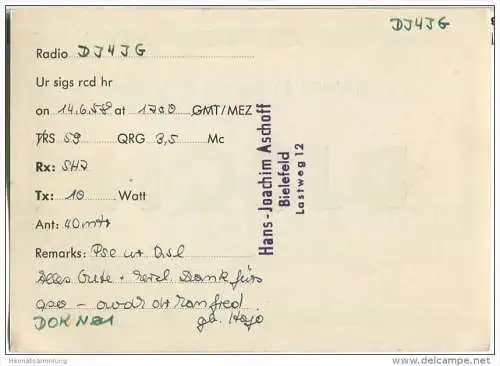 DJ4JG
Radio DJ4JG
Ur sigs rcd hr
on 14.6.58 at 1700 GMT/MEZ
TRS 59 QRG 3,5 Mc
Rx:
Tx: 10 Watt
Ant: 40 mtr
Remarks: Pse ur Qsl
Alles Gute + herzl. Dank fürs
qso - Manfred
DOK N01 gb. Hajo
Hans-Joachim Aschoff
Bielefeld
Lastweg 12
Heimatsammlung
www.delcampe.net